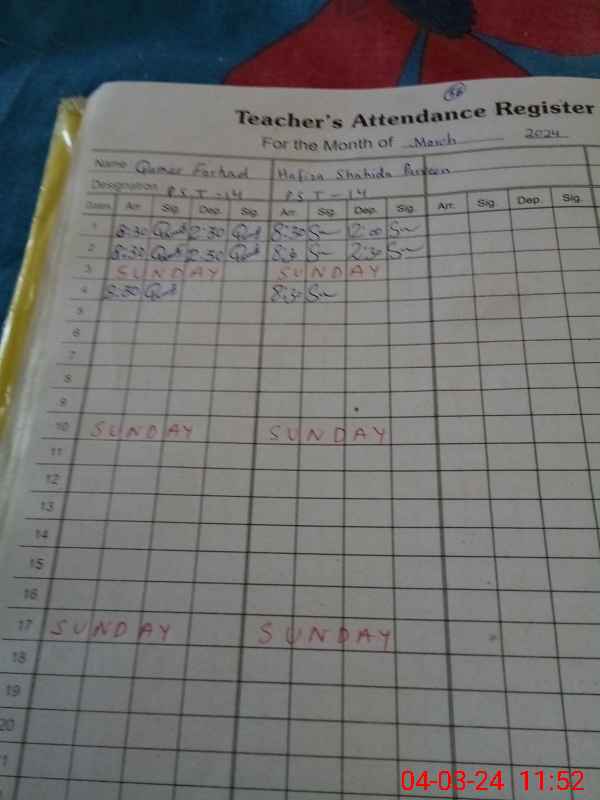 56
Teacher's Attendance Register
For the Month of March 2024
Name Qamar Farhad Hafiza Shahida Parveen
Designation P.S.T - 14 P.S.T - 14
Dates Arr. Sig. Dep. Sig. Arr. Sig. Dep. Sig. Arr. Sig. Dep. Sig.
1 8:30 2:30 8:30 12:00
2 8:30 2:30 8:30 2:30
3 SUNDAY SUNDAY
4 8:30 8:30
5
6
7
8
9
10 SUNDAY SUNDAY
11
12
13
14
15
16
17 SUNDAY SUNDAY
18
19
20
04-03-24 11:52